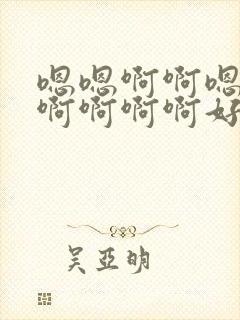 嗯嗯啊啊嗯
啊啊啊啊好
吴亚明